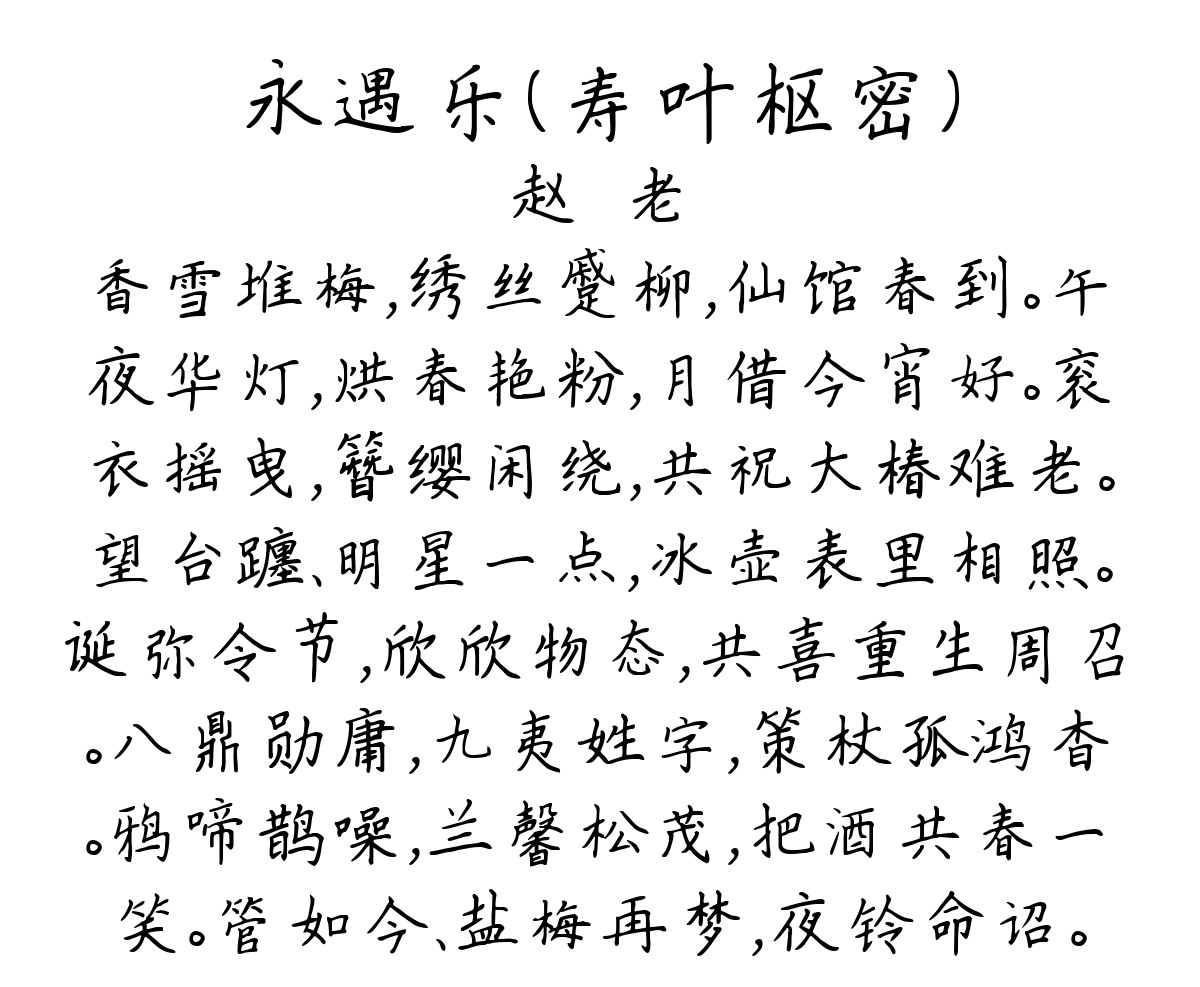 永遇乐(寿叶枢密)
赵 老
香雪堆梅,绣丝蹙柳,仙馆春到。午
夜华灯,烘春艳粉,月借今宵好。衮
衣摇曳,簪缨闲绕,共祝大椿难老。
望台躔、明星一点,冰壶表里相照。
诞弥令节,欣欣物态,共喜重生周召
。八鼎勋庸,九夷姓字,策杖孤鸿杳
。鸦啼鹊噪,兰馨松茂,把酒共春一
笑。管如今、盐梅再梦,夜铃命诏。